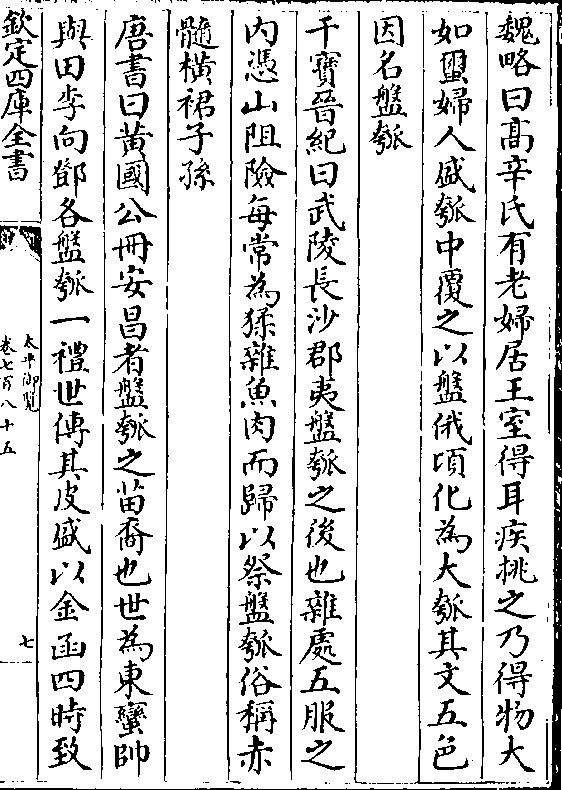 魏略曰髙辛氏有老婦居王室得耳疾挑之乃得物大
如蠒婦人盛瓠中覆之以盤俄頃化為大瓠其文五色
因名盤瓠
干寶晉紀曰武陵長沙郡夷盤瓠之後也雜處五服之
内憑山阻險每常為猱雜魚肉而歸以祭盤瓠俗稱赤
髓橫裙子孫
唐書曰黄國公冊安昌者盤瓠之苗裔也世為東蠻帥
與田李向鄧各盤瓠一禮世傳其皮盛以金函四時致
欽定四庫全書
太平御覧
卷七百八十五
七